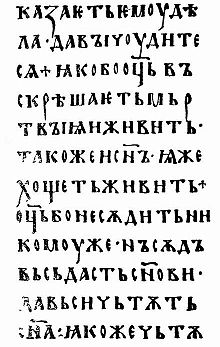 каꙁаѥтьѥмоудѣ
ла·давꙑчоудите
сѧ+ꙗкобооц҃ьвъ
скрѣшаѥтьмьр
твꙑѩиживить·
такожеисн҃ъ·ѩже
хощетьживить+
оц҃ьбонесѫдитьни
комоуже·нъсѫдъ
вьсьдастьсн҃ови·
давьсичьтѫть
сн҃а:ꙗкожечьтѫ